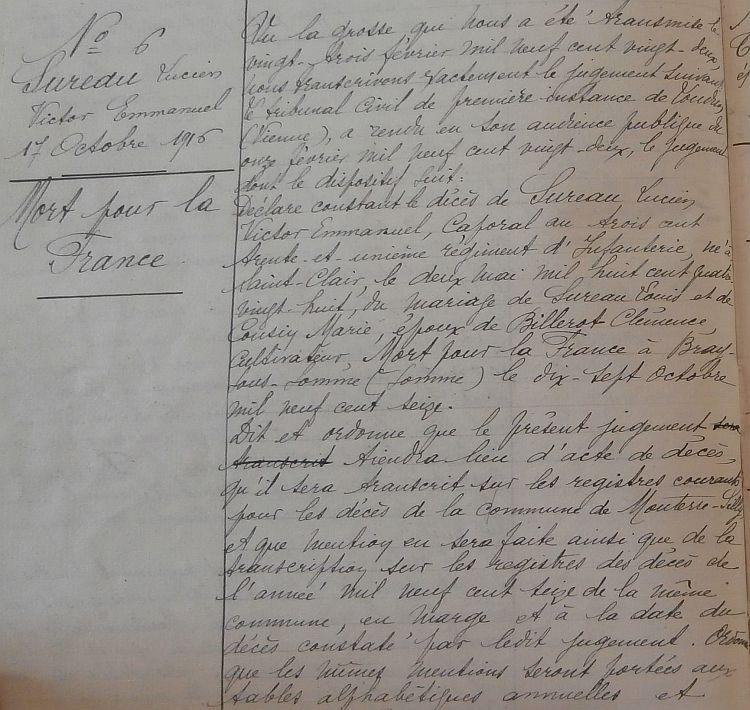 N° 6
Sureau Lucien
Victor Emmanuel
17 Octobre 1916
Mort pour la
France
Vu la grosse, qui nous a été transmise le
vingt-trois février mil neuf cent vingt-deux,
nous transcrivons exactement le jugement suivant
le tribunal Civil de première instance de Loudun
(Vienne), a rendu en son audience publique du
onze février mil neuf cent vingt-deux, le jugement
dont le dispositif suit:
Déclare constant le décès de Sureau Lucien
Victor Emmanuel, Caporal au trois cent
trente-et-unième régiment d'Infanterie, né à
Saint-Clair, le deux mai mil huit cent quatre
vingt-huit, du mariage de Sureau Louis et de
Cousin Marie, époux de Billerot Clémence,
cultivateur, Mort pour la France à Bray-
sous-Somme (Somme) le dix-sept octobre
mil neuf cent seize.
Dit et ordonne que le présent jugement sera
transcrit tiendra lieu d'acte de décès,
qu'il sera transcrit sur les registres courants
pour les décès de la commune de Monterre-Silly
et que mention en sera faite ainsi que de la
transcription sur les registres des décès de
l'année mil neuf cent seize de la même
commune, en marge et à la date du
décès constaté par ledit jugement. Ordonne
que les mêmes mentions seront portées aux
tables alphabétiques annuelles et